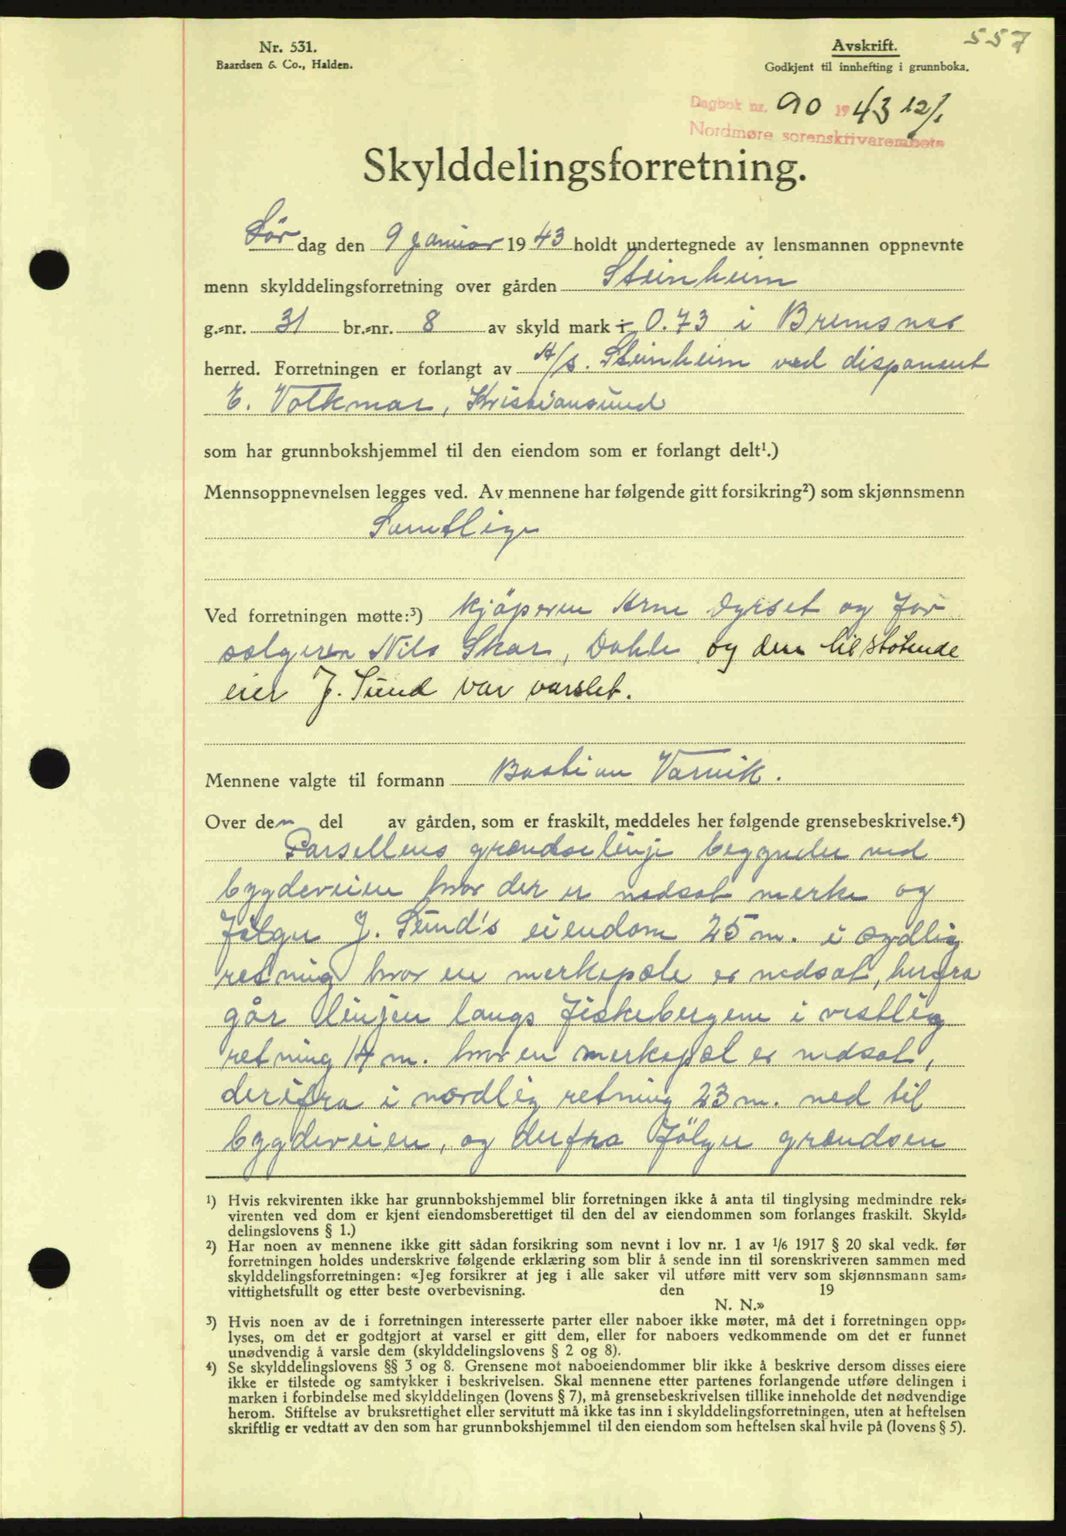 557
Nr. 531.
Baardsen & Co., Halden.
Avskrift.
Godkjent til innhefting i grunnboka.
Dagbok nr. 90 1943 12/1
Nordmøre sorenskriverembete
Skylddelingsforretning.
Lør dag den 9 januar 1943 holdt undertegnede av lensmannen oppnevnte
menn skylddelingsforretning over gården Steinheim
g.-nr. 31 br.-nr. 8 av skyld mark ÷ 0.73 i Bremsnes
herred. Forretningen er forlangt av A/s. Steinheim ved disponent
E. Volkmar, Kristiansund
som har grunnbokshjemmel til den eiendom som er forlangt delt¹.)
Mennsoppnevnelsen legges ved. Av mennene har følgende gitt forsikring²) som skjønnsmenn
Samtlige
Ved forretningen møtte:³) kjøperen Arne Dyrset og for
selgeren Nils Skar, Dahle og den tilstøtende
eier J. Sund var varslet.
Mennene valgte til formann Bastian Varvik.
Over den del av gården, som er fraskilt, meddeles her følgende grensebeskrivelse.⁴)
Parsellens grændselinje begynder ved
bygdeveien hvor der er nedsat merke og
følger J. Sund's eiendom 25 m. i sydlig
retning hvor en merkepæle er nedsat, herfra
går linjen langs fiskebergene i vestlig
retning 14 m. hvor en merkepæl er nedsat,
derifra i nordlig retning 23 m. ned til
bygdeveien, og derfra følger grændsen
¹) Hvis rekvirenten ikke har grunnbokshjemmel blir forretningen ikke å anta til tinglysing medmindre rek-
virenten ved dom er kjent eiendomsberettiget til den del av eiendommen som forlanges fraskilt. Skyld-
delingslovens § 1.)
²) Har noen av mennene ikke gitt sådan forsikring som nevnt i lov nr. 1 av 1/6 1917 § 20 skal vedk. før
forretningen holdes underskrive følgende erklæring som blir å sende inn til sorenskriveren sammen med
skylddelingsforretningen: «Jeg forsikrer at jeg i alle saker vil utføre mitt verv som skjønnsmann sam-
vittighetsfullt og etter beste overbevisning. den 19
N. N.»
³) Hvis noen av de i forretningen interesserte parter eller naboer ikke møter, må det i forretningen opp-
lyses, om det er godtgjort at varsel er gitt dem, eller for naboers vedkommende om det er funnet
unødvendig å varsle dem (skylddelingslovens § 2 og 8).
⁴) Se skylddelingslovens §§ 3 og 8. Grensene mot naboeiendommer blir ikke å beskrive dersom disses eiere
ikke er tilstede og samtykker i beskrivelsen. Skal mennene etter partenes forlangende utføre delingen i
marken i forbindelse med skylddelingen (lovens § 7), må grensebeskrivelsen tillike inneholde det nødvendige
herom. Stiftelse av bruksrettighet eller servitutt må ikke tas inn i skylddelingsforretningen, uten at heftelsen
skriftlig er vedtatt av den som har grunnbokshjemmel til den eiendom som heftelsen skal hvile på (lovens § 5).